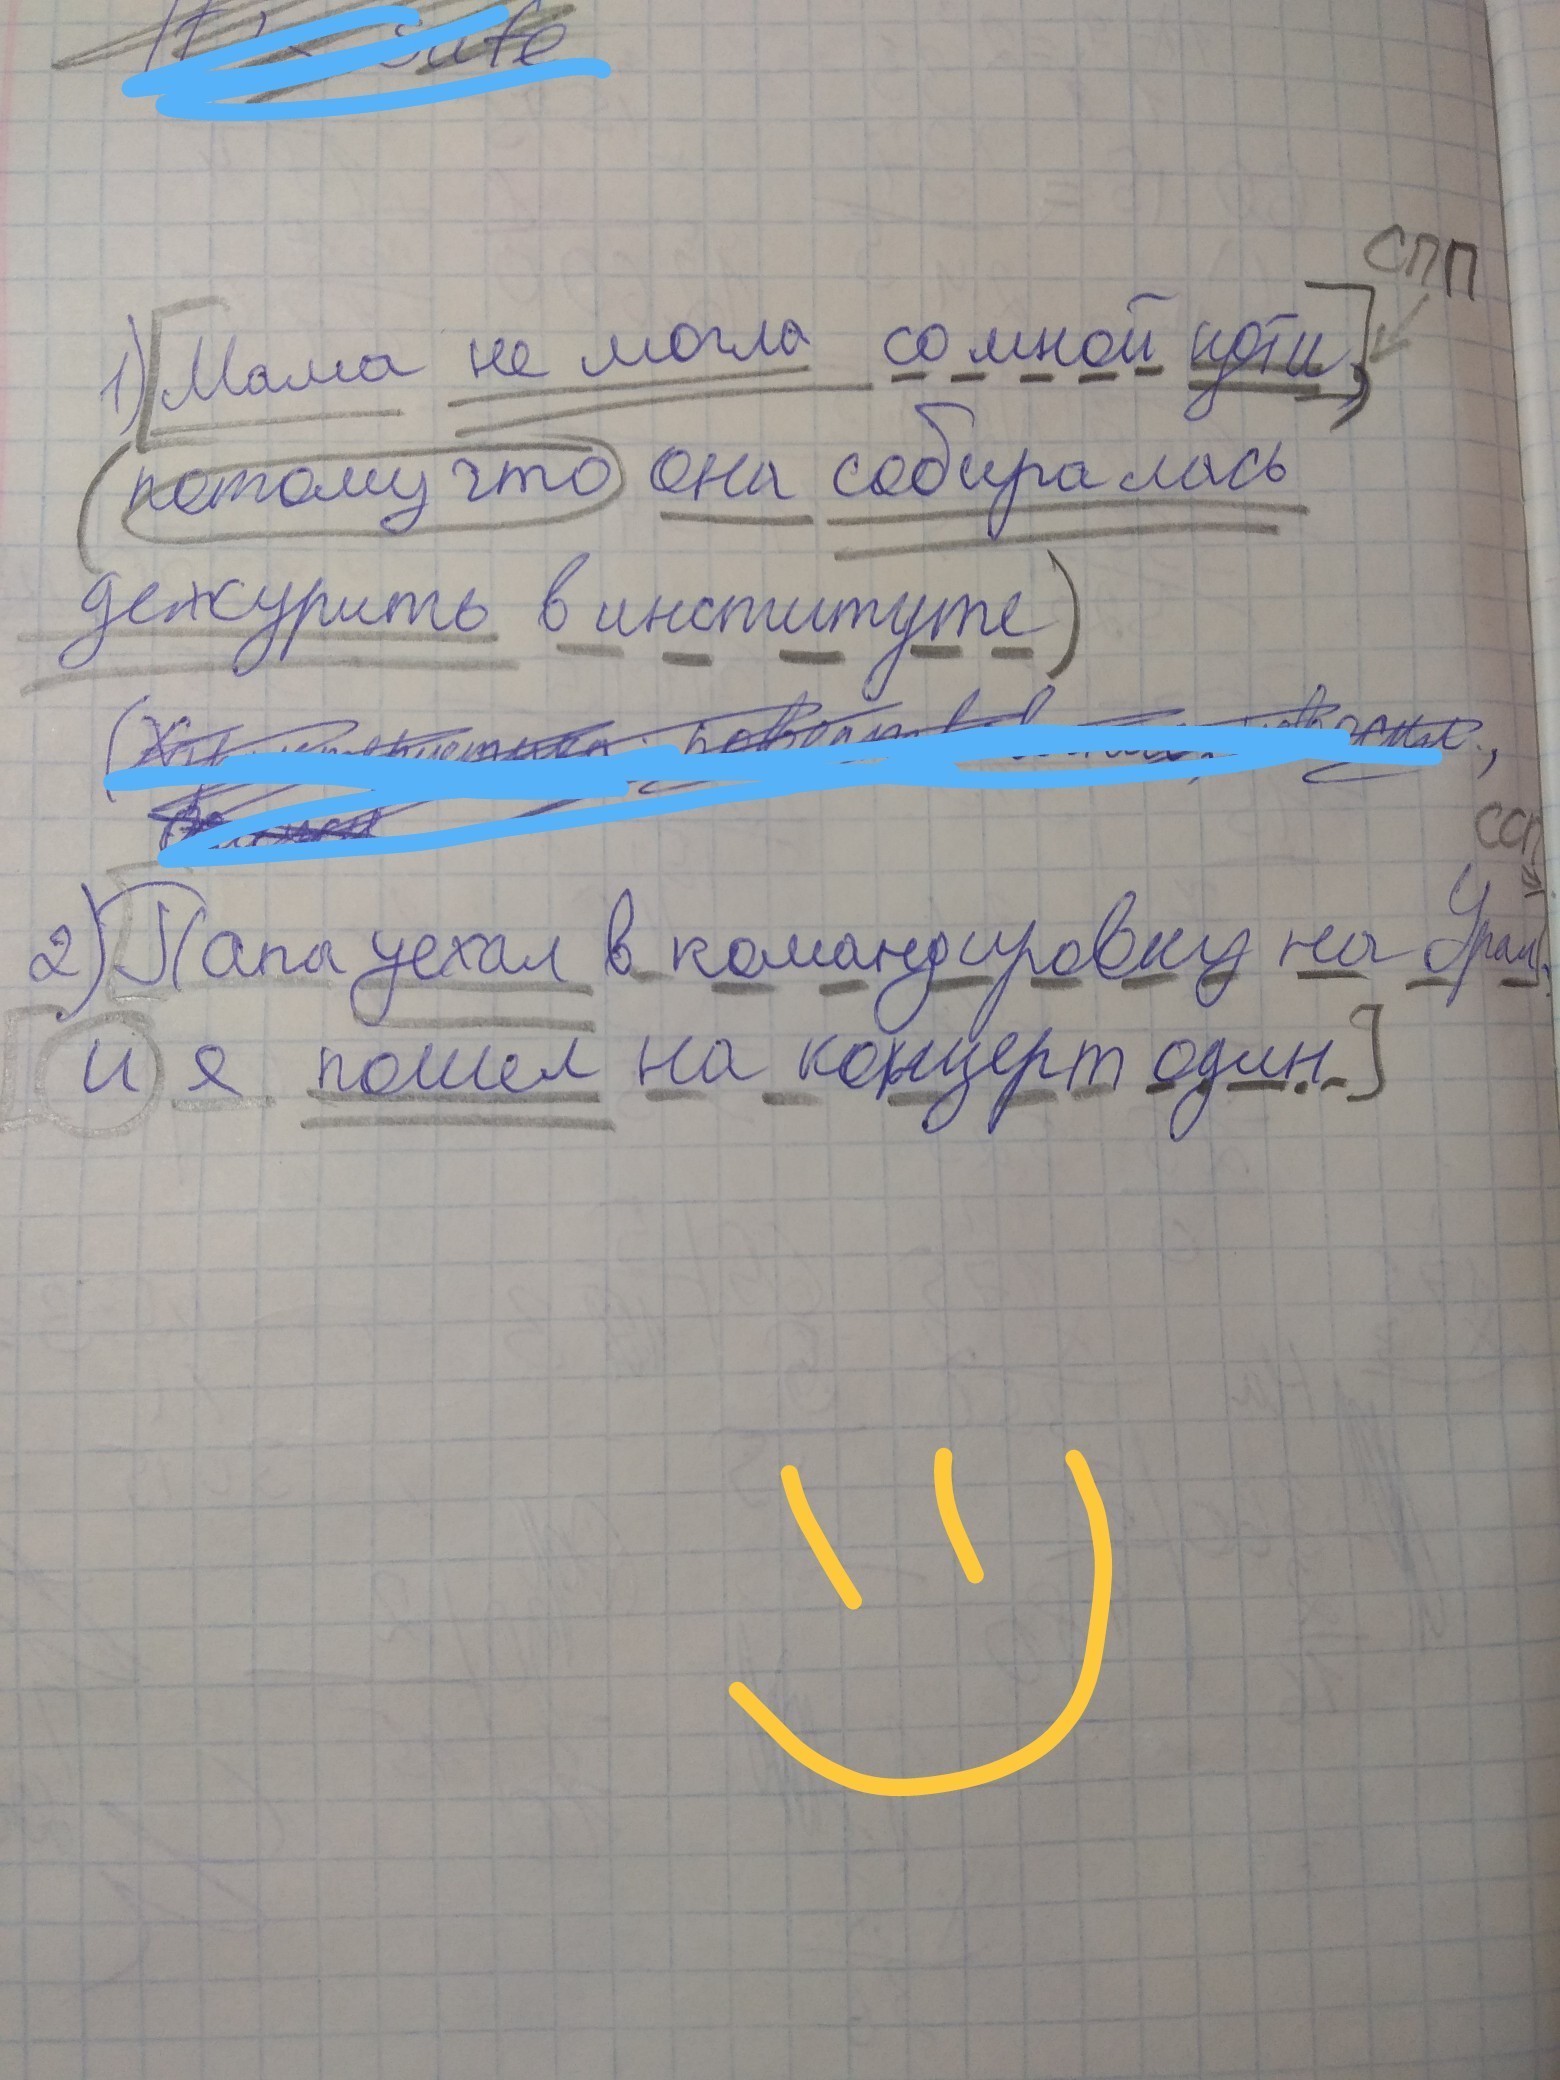 СПП
1) [Мама не могла со мной идти],
(потому что она собиралась
дежурить в институте)
ССП
2) [Папа уехал в командировку на Урал],
[и я пошел на концерт один.]